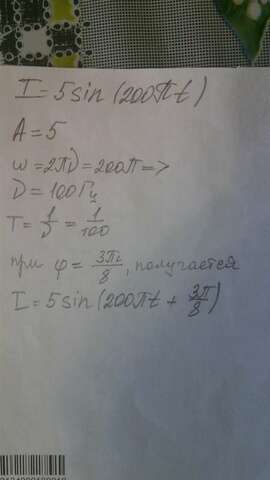 I = 5 sin (200πt)
A = 5
w = 2πν = 200π =>
ν = 100 Гц
T = 1/ν = 1/100
при φ = 3π/8, получается
I = 5 sin (200πt + 3π/8)